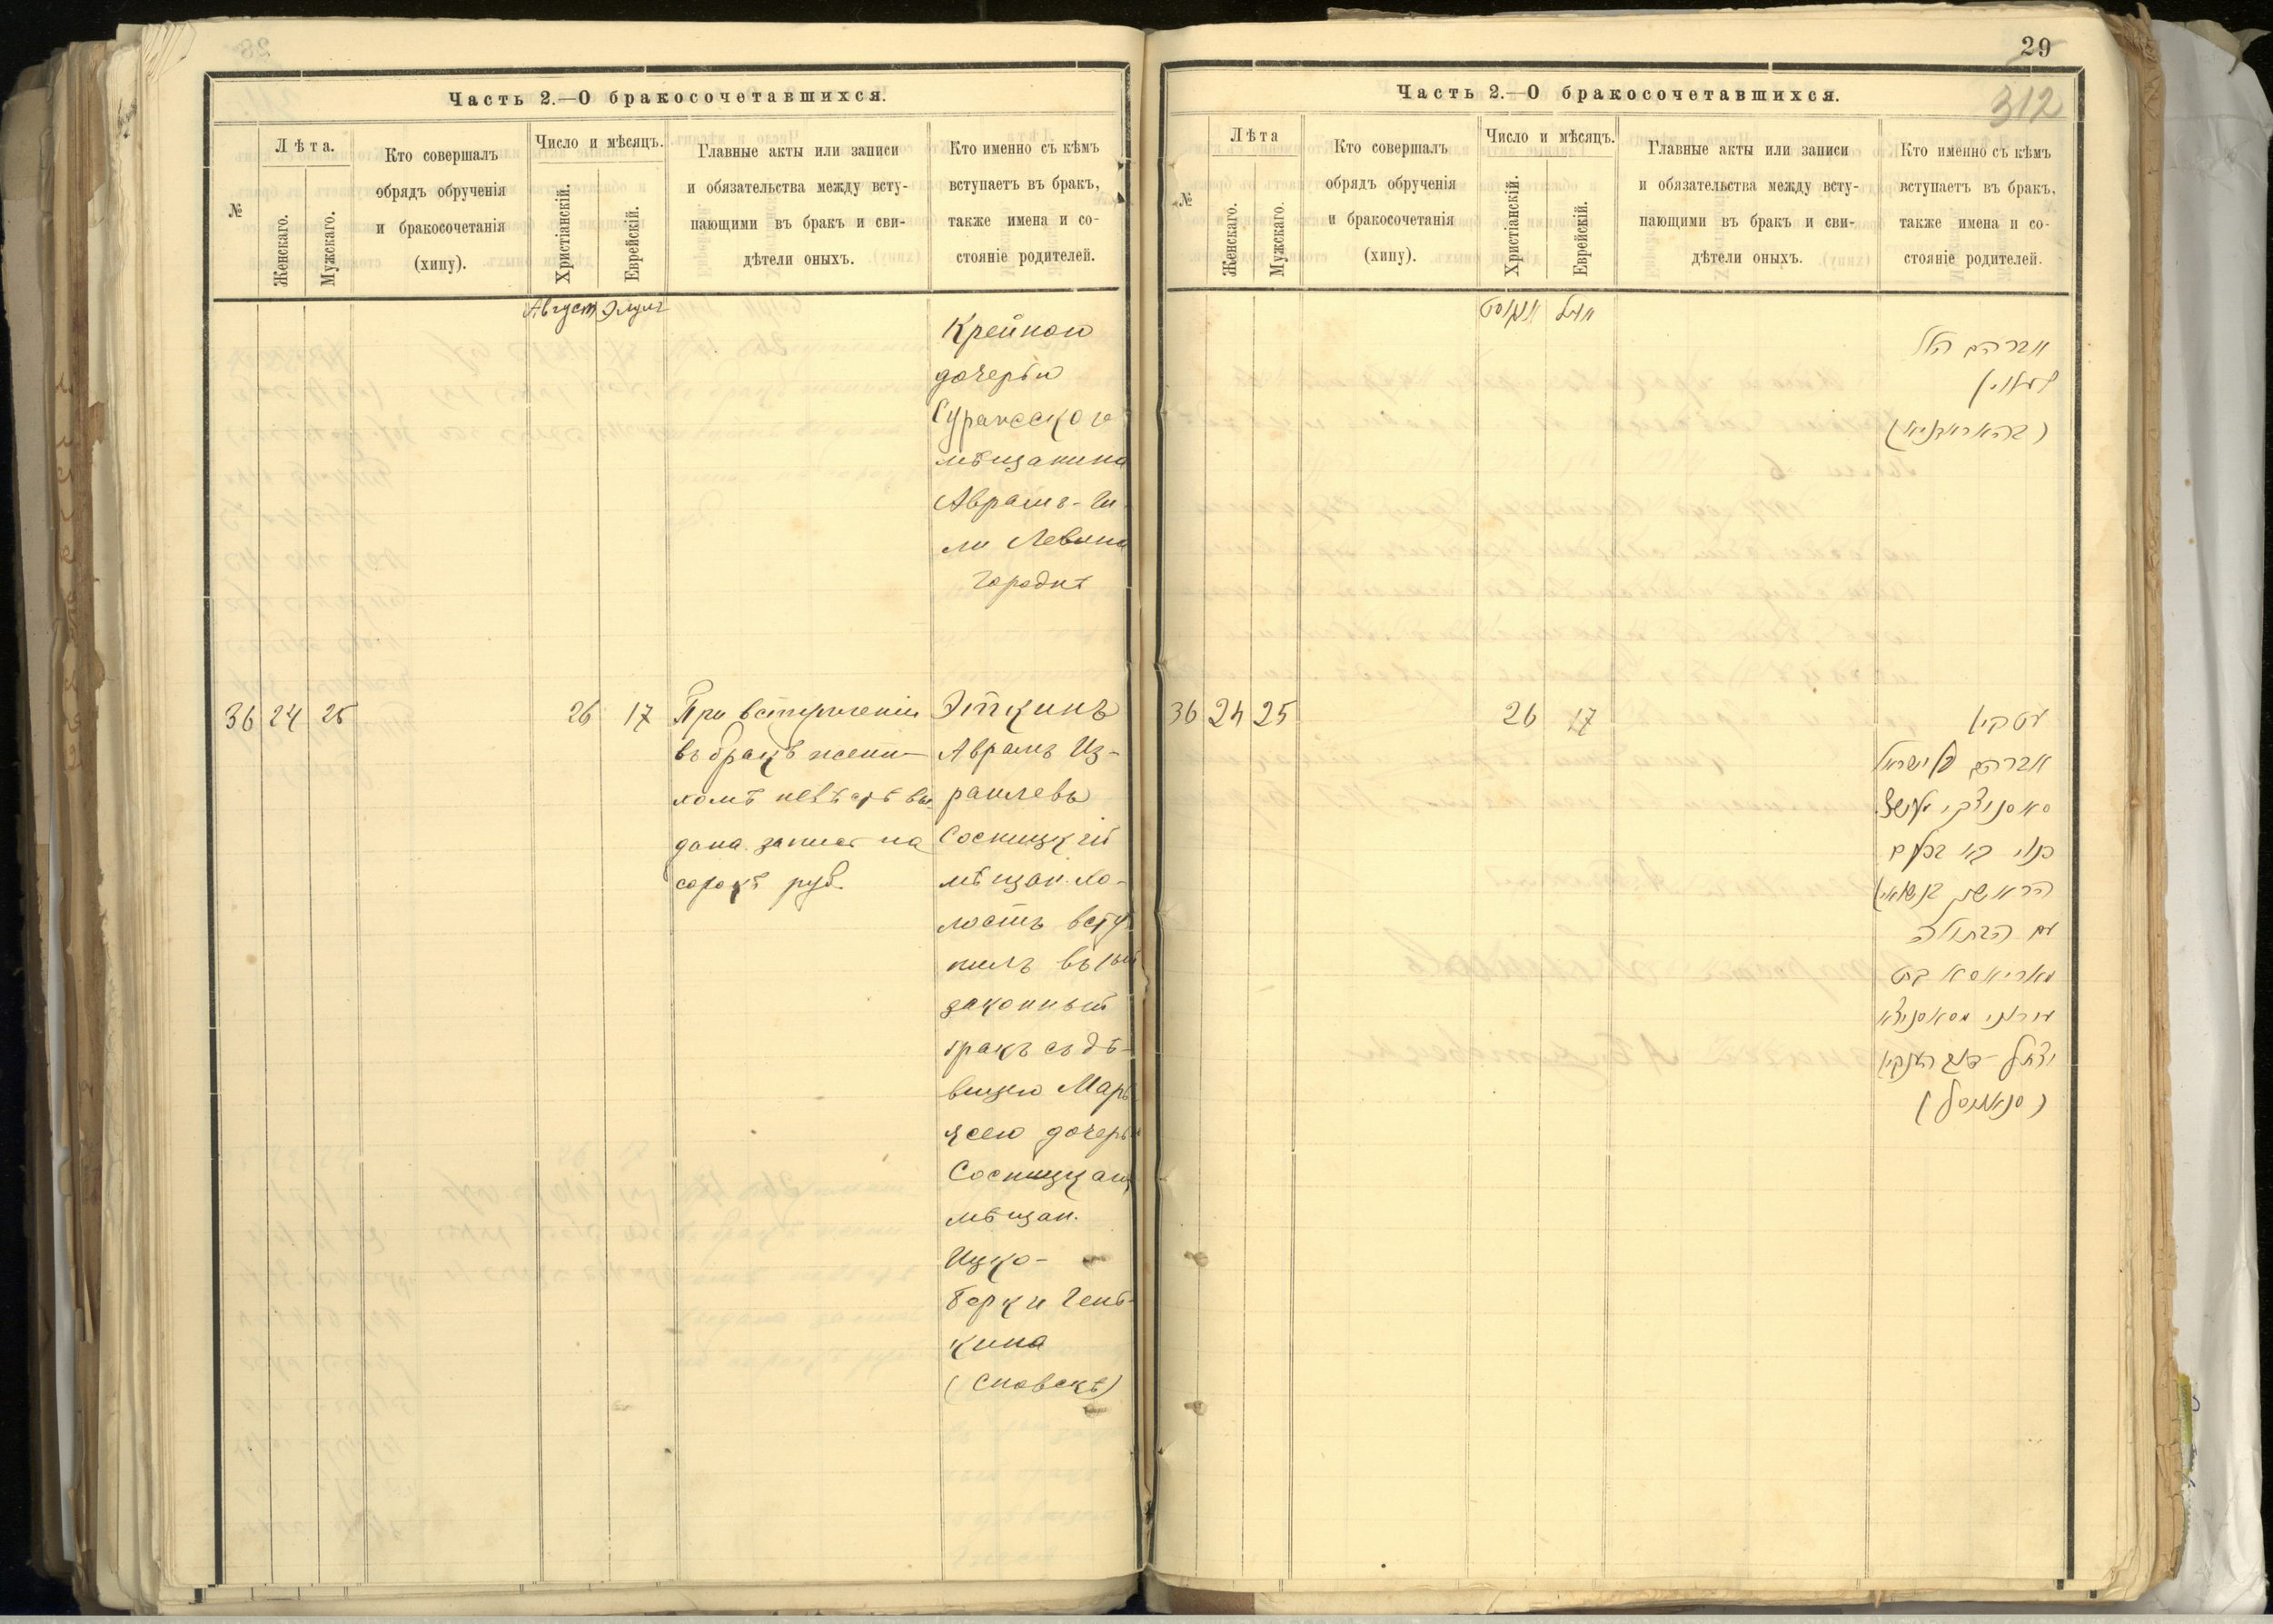 Часть 2.—О бракосочетавшихся.
№
Лѣта.
Женскаго.
Мужскаго.
Кто совершалъ
обрядъ обрученія
и бракосочетанія
(хипу).
Число и мѣсяцъ.
Христіанскій.
Еврейскій.
Главные акты или записи
и обязательства между всту-
пающими въ бракъ и сви-
дѣтели оныхъ.
Кто именно съ кѣмъ
вступаетъ въ бракъ,
также имена и со-
стояніе родителей.
Август Элулъ
Крейною
дочерью
Суражского
мѣщанина
Аврамъ-Ги
ли Левина
Городня
36 24 25 26 17
При вступленіи
въ бракъ жени-
хомъ невѣстѣ вы
дана запись на
сорокъ руб.
Эткинъ
Аврамъ Из-
раилевъ
Сосницкій
мѣщан. хо-
лостъ всту
пилъ въ 1ый
законный
бракъ съ дѣ-
вицею Марь
ясею дочерью
Сосницкаго
мѣщан.
Ицко-
Берки Гень-
кина
(Сновскъ)
29
312
Часть 2.—О бракосочетавшихся.
№
Лѣта
Женскаго.
Мужскаго.
Кто совершалъ
обрядъ обрученія
и бракосочетанія
(хипу).
Число и мѣсяцъ.
Христіанскій.
Еврейскій.
Главные акты или записи
и обязательства между всту-
пающими въ бракъ и сви-
дѣтели оныхъ.
Кто именно съ кѣмъ
вступаетъ въ бракъ,
также имена и со-
стояніе родителей.
אויגוסט אלול
אברהם הלל
לעווין
36 24 25 26 17
עטקין
אברהם בן ישראל
עם הבתולה